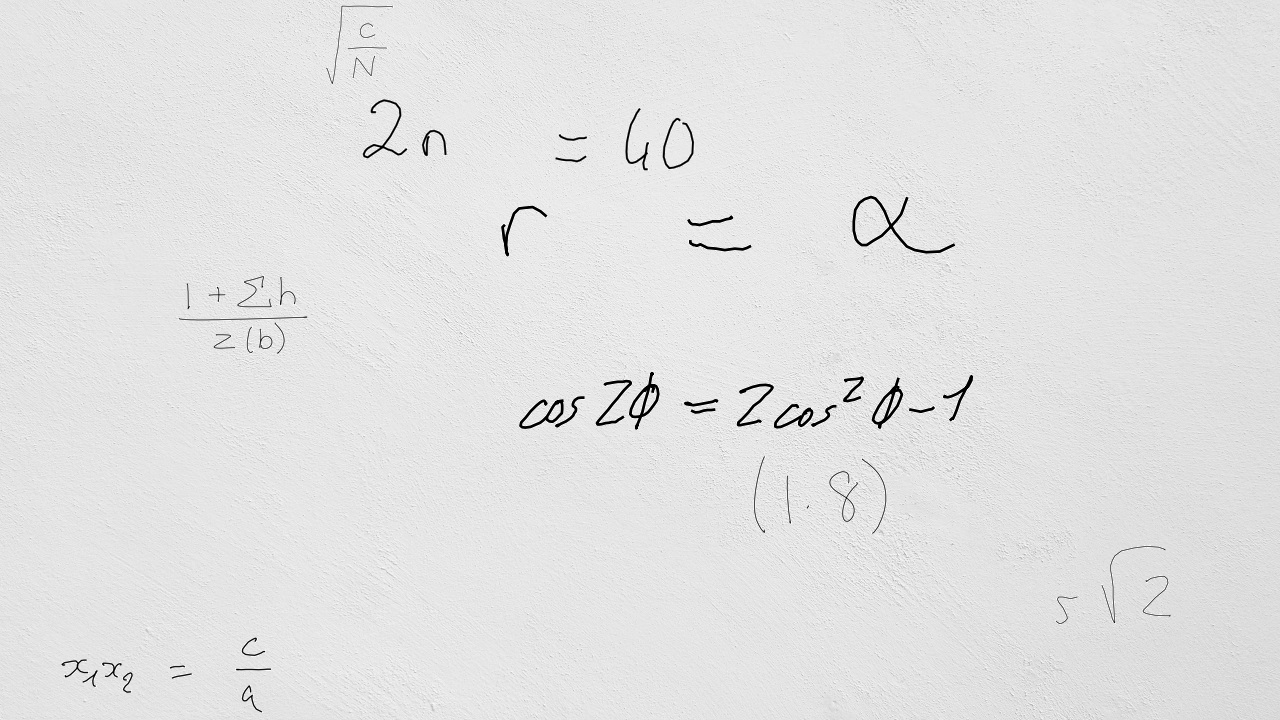 √(c/N)
2n = 40
r = α
(1 + Σh)/(z(b))
cos 2ϕ = 2cos² ϕ − 1
(1.8)
5√2
x₁x₂ = c/a